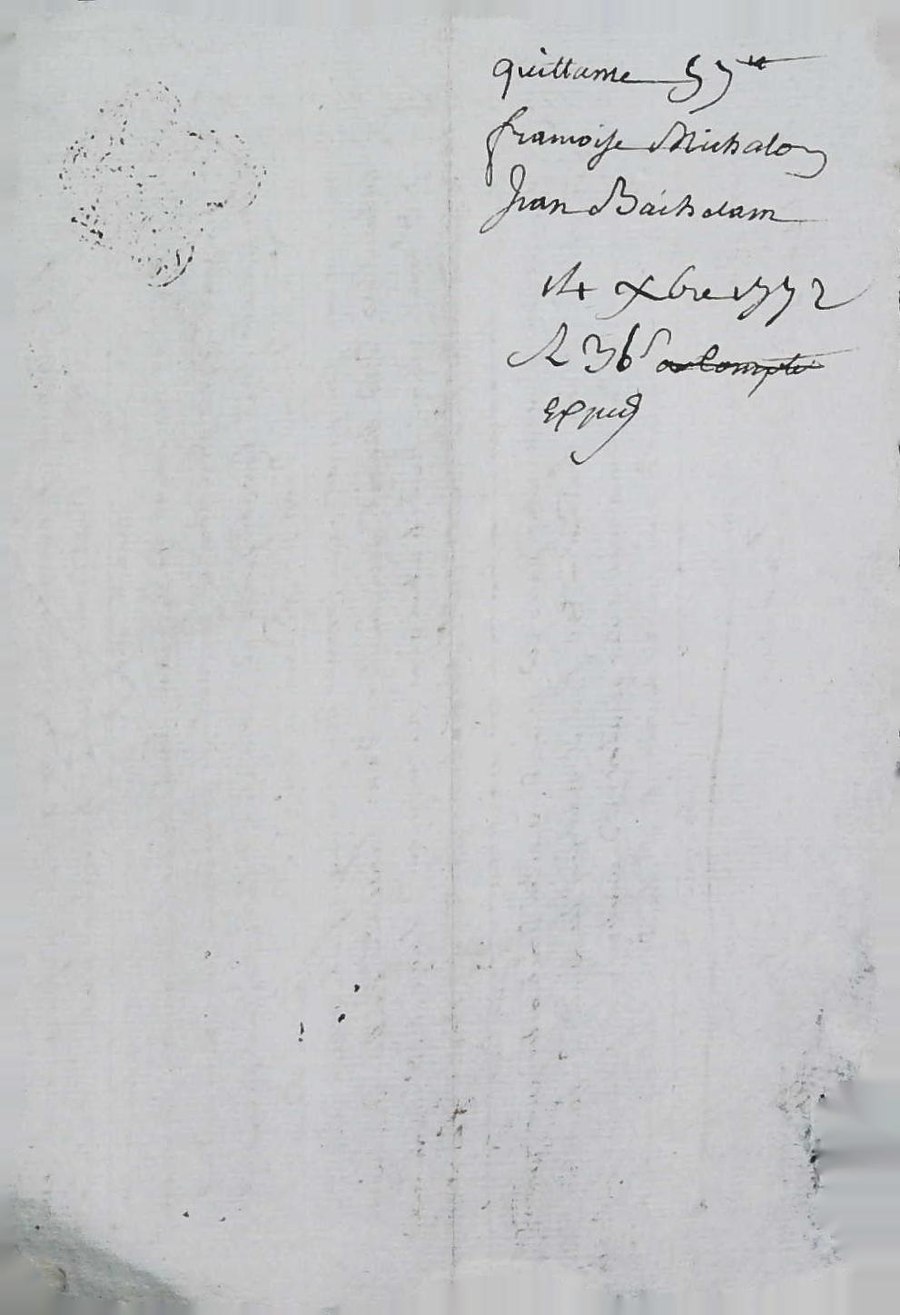 quittance 57 tt
francoise Michalon
Jean Bachelam
14 xbre 1772
R 36 s a Compte
Exped